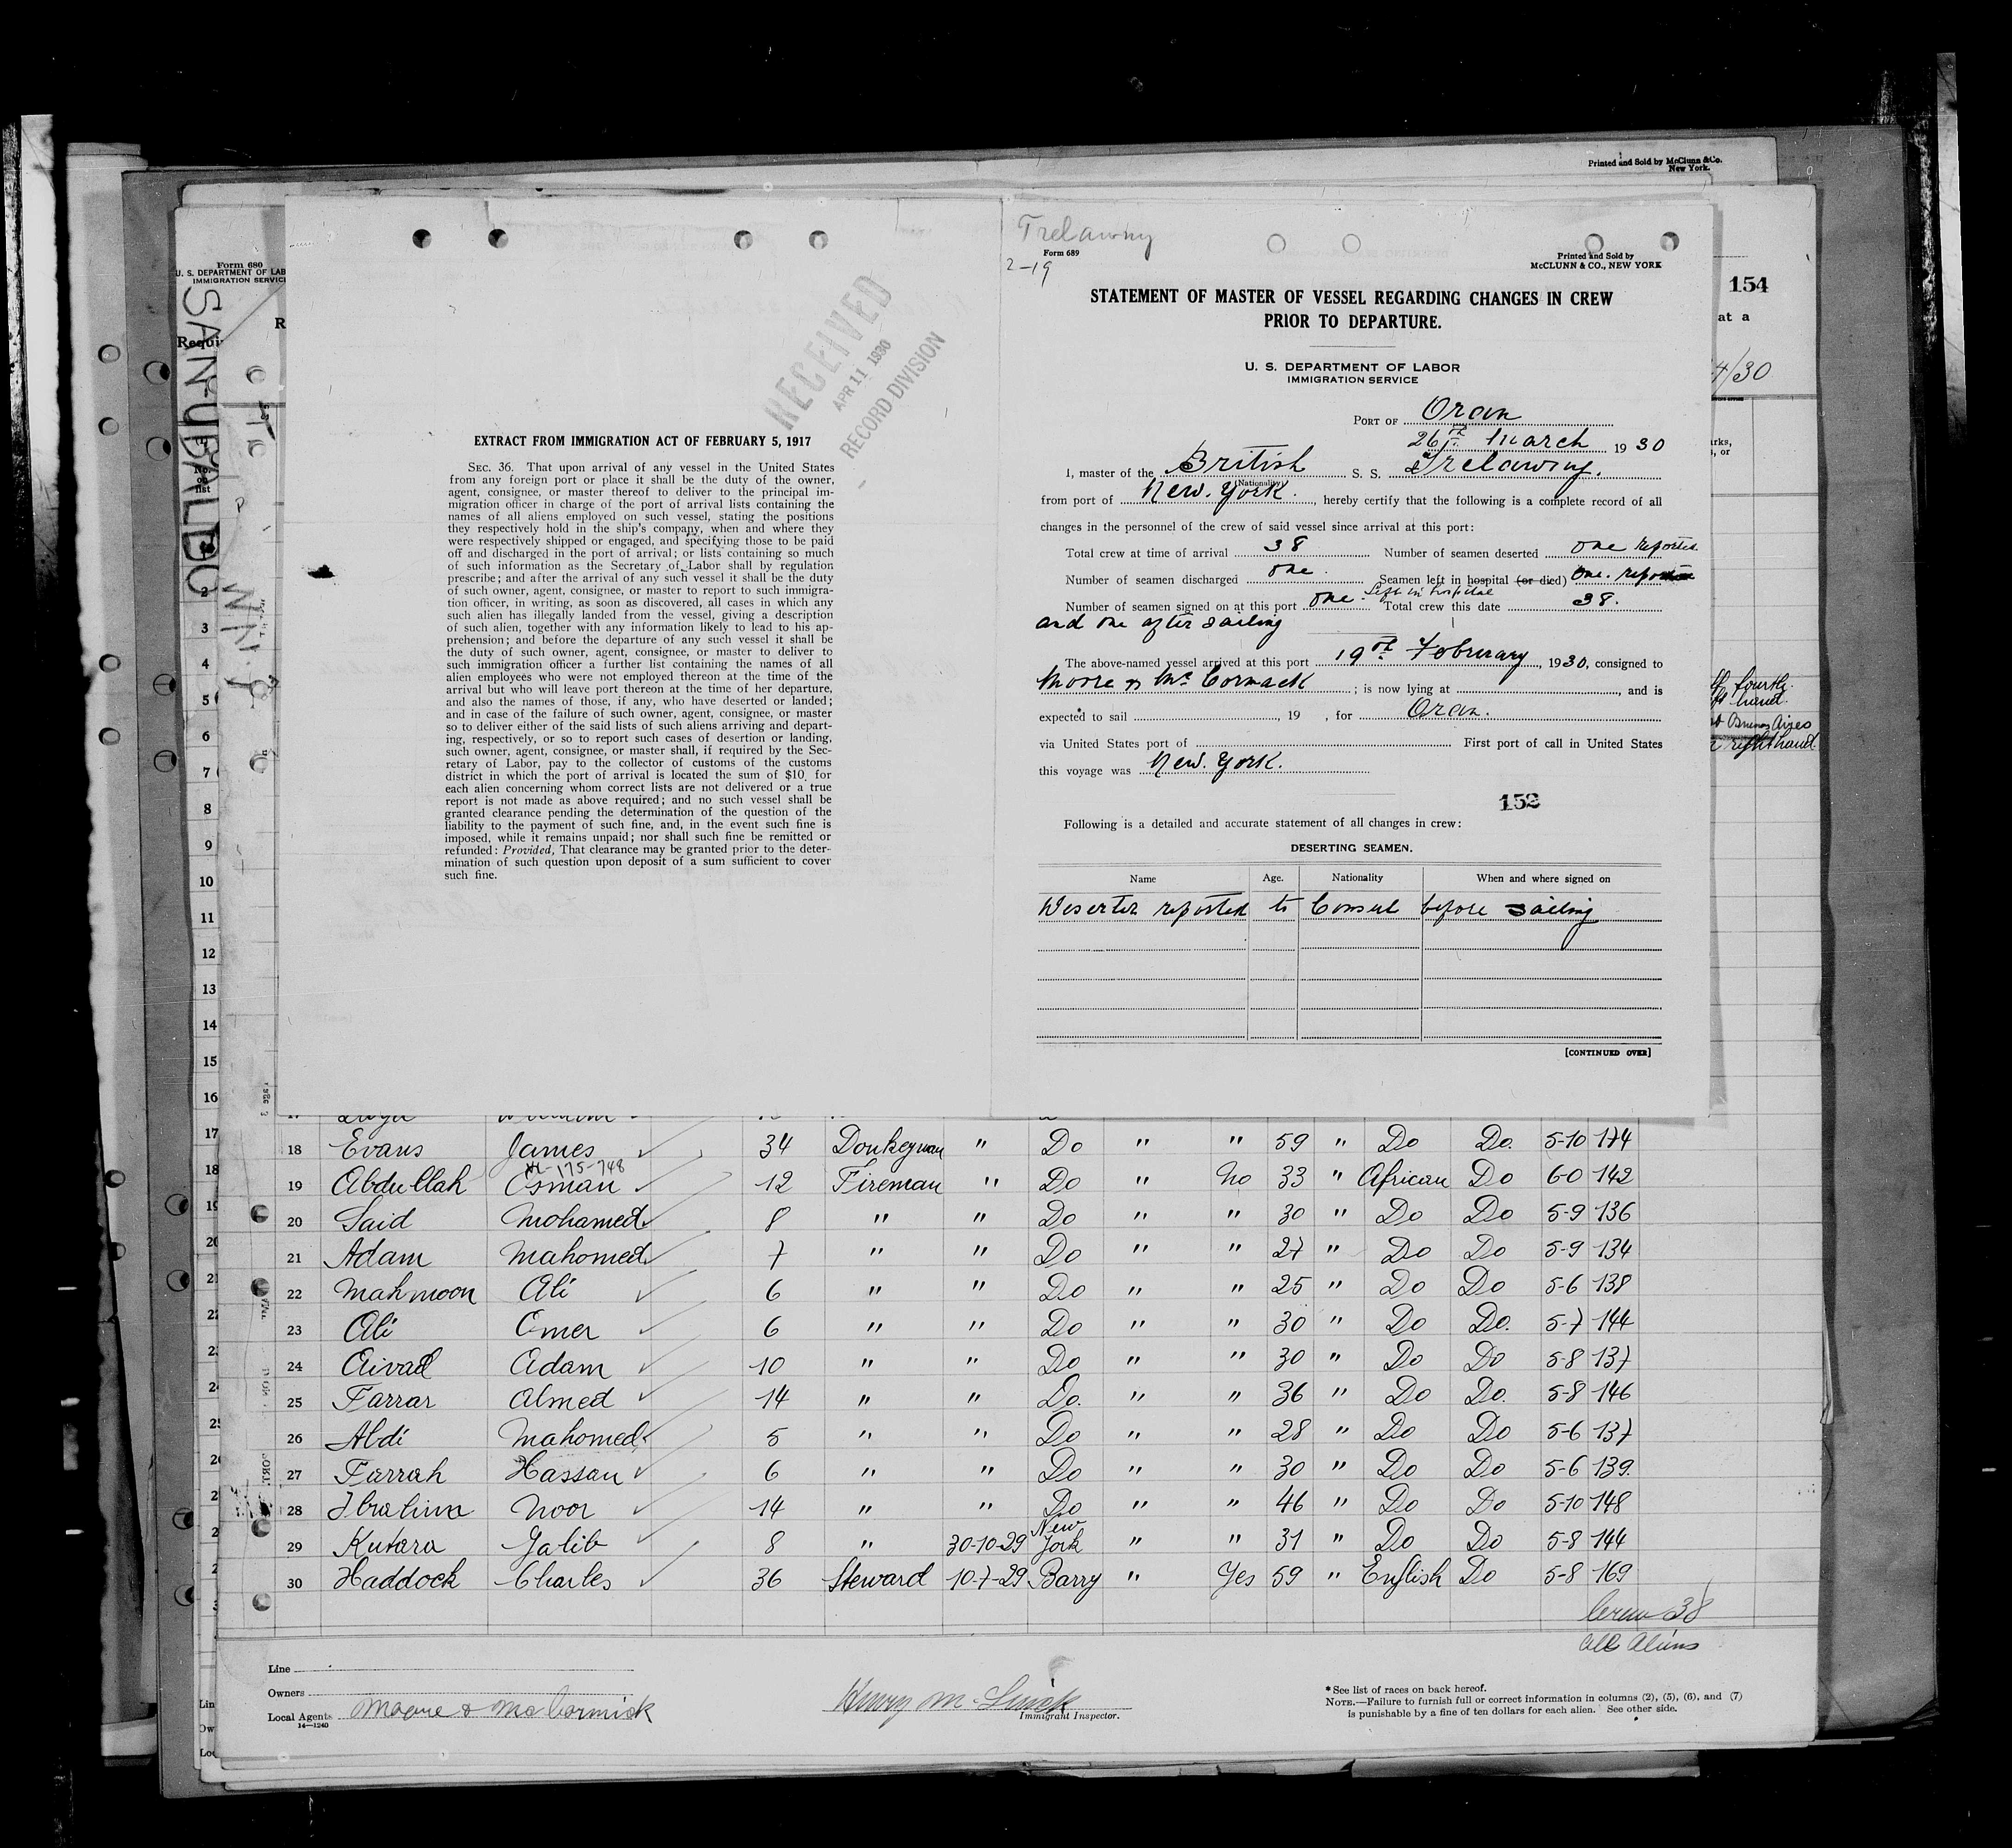 Printed and Sold by McClunn & Co.
New York.
Form 680
U. S. DEPARTMENT OF LAB
IMMIGRATION SERVICE
SAN UBALDO
154
at a
4/30
RECEIVED
APR 11 1930
RECORD DIVISION
EXTRACT FROM IMMIGRATION ACT OF FEBRUARY 5, 1917
SEC. 36. That upon arrival of any vessel in the United States
from any foreign port or place it shall be the duty of the owner,
agent, consignee, or master thereof to deliver to the principal im-
migration officer in charge of the port of arrival lists containing the
names of all aliens employed on such vessel, stating the positions
they respectively hold in the ship's company, when and where they
were respectively shipped or engaged, and specifying those to be paid
off and discharged in the port of arrival; or lists containing so much
of such information as the Secretary of Labor shall by regulation
prescribe; and after the arrival of any such vessel it shall be the duty
of such owner, agent, consignee, or master to report to such immigra-
tion officer, in writing, as soon as discovered, all cases in which any
such alien has illegally landed from the vessel, giving a description
of such alien, together with any information likely to lead to his ap-
prehension; and before the departure of any such vessel it shall be
the duty of such owner, agent, consignee, or master to deliver to
such immigration officer a further list containing the names of all
alien employees who were not employed thereon at the time of the
arrival but who will leave port thereon at the time of her departure,
and also the names of those, if any, who have deserted or landed;
and in case of the failure of such owner, agent, consignee, or master
so to deliver either of the said lists of such aliens arriving and depart-
ing, respectively, or so to report such cases of desertion or landing,
such owner, agent, consignee, or master shall, if required by the Sec-
retary of Labor, pay to the collector of customs of the customs
district in which the port of arrival is located the sum of $10 for
each alien concerning whom correct lists are not delivered or a true
report is not made as above required; and no such vessel shall be
granted clearance pending the determination of the question of the
liability to the payment of such fine, and, in the event such fine is
imposed, while it remains unpaid; nor shall such fine be remitted or
refunded: Provided, That clearance may be granted prior to the deter-
mination of such question upon deposit of a sum sufficient to cover
such fine.
Trelawny
Form 689
2-19
Printed and Sold by
McCLUNN & CO., NEW YORK
STATEMENT OF MASTER OF VESSEL REGARDING CHANGES IN CREW
PRIOR TO DEPARTURE.
U. S. DEPARTMENT OF LABOR
IMMIGRATION SERVICE
PORT OF Oran
26th March 1930
I, master of the British S. S. Trelawny.
(Nationality)
from port of New. York., hereby certify that the following is a complete record of all
changes in the personnel of the crew of said vessel since arrival at this port:
Total crew at time of arrival 38 Number of seamen deserted one reported
Number of seamen discharged one. Seamen left in hospital (or died) One. reported
Left in hospital
Number of seamen signed on at this port one Total crew this date 38.
and one after sailing
The above-named vessel arrived at this port 19th February, 1930, consigned to
Moore & McCormack; is now lying at , and is
expected to sail , 19 , for Oran.
via United States port of First port of call in United States
this voyage was New. York.
152
Following is a detailed and accurate statement of all changes in crew:
DESERTING SEAMEN.
Name Age. Nationality When and where signed on
Deserter reported to Consul before sailing
[CONTINUED OVER]
fourth
hand.
Buenos Aires
right hand
18 Evans James 34 Donkeyman " Do " " 59 " Do Do. 5-10 174
NL-175-748
19 Abdullah Osman 12 Fireman " Do " No 33 " African Do 6-0 142
20 Said Mohamed 8 " " Do " " 30 " Do Do 5-9 136
21 Adam Mahomed 7 " " Do " " 27 " Do Do 5-9 134
22 Mahmoon Ali 6 " " Do " " 25 " Do Do 5-6 138
23 Ali Omer 6 " " Do " " 30 " Do Do. 5-7 144
24 Aivad Adam 10 " " Do " " 30 " Do Do 5-8 137
25 Farrar Ahmed 14 " " Do. " " 36 " Do Do. 5-8 146
26 Abdi Mahomed 5 " " Do " " 28 " Do Do 5-6 137
27 Farrah Hassan 6 " " Do " " 30 " Do Do 5-6 139.
28 Ibrahim Noor 14 " " Do " " 46 " Do Do 5-10 148
29 Kutara Galib 8 " 30-10-29 New York " " 31 " Do Do 5-8 144
30 Haddock Charles 36 Steward 10-7-29 Barry " Yes 59 " English Do 5-8 169
Crew 38
all Aliens
Line
Owners
Local Agents Moore & McCormick
14-1240
Immigrant Inspector.
*See list of races on back hereof.
NOTE.—Failure to furnish full or correct information in columns (2), (5), (6), and (7)
is punishable by a fine of ten dollars for each alien. See other side.